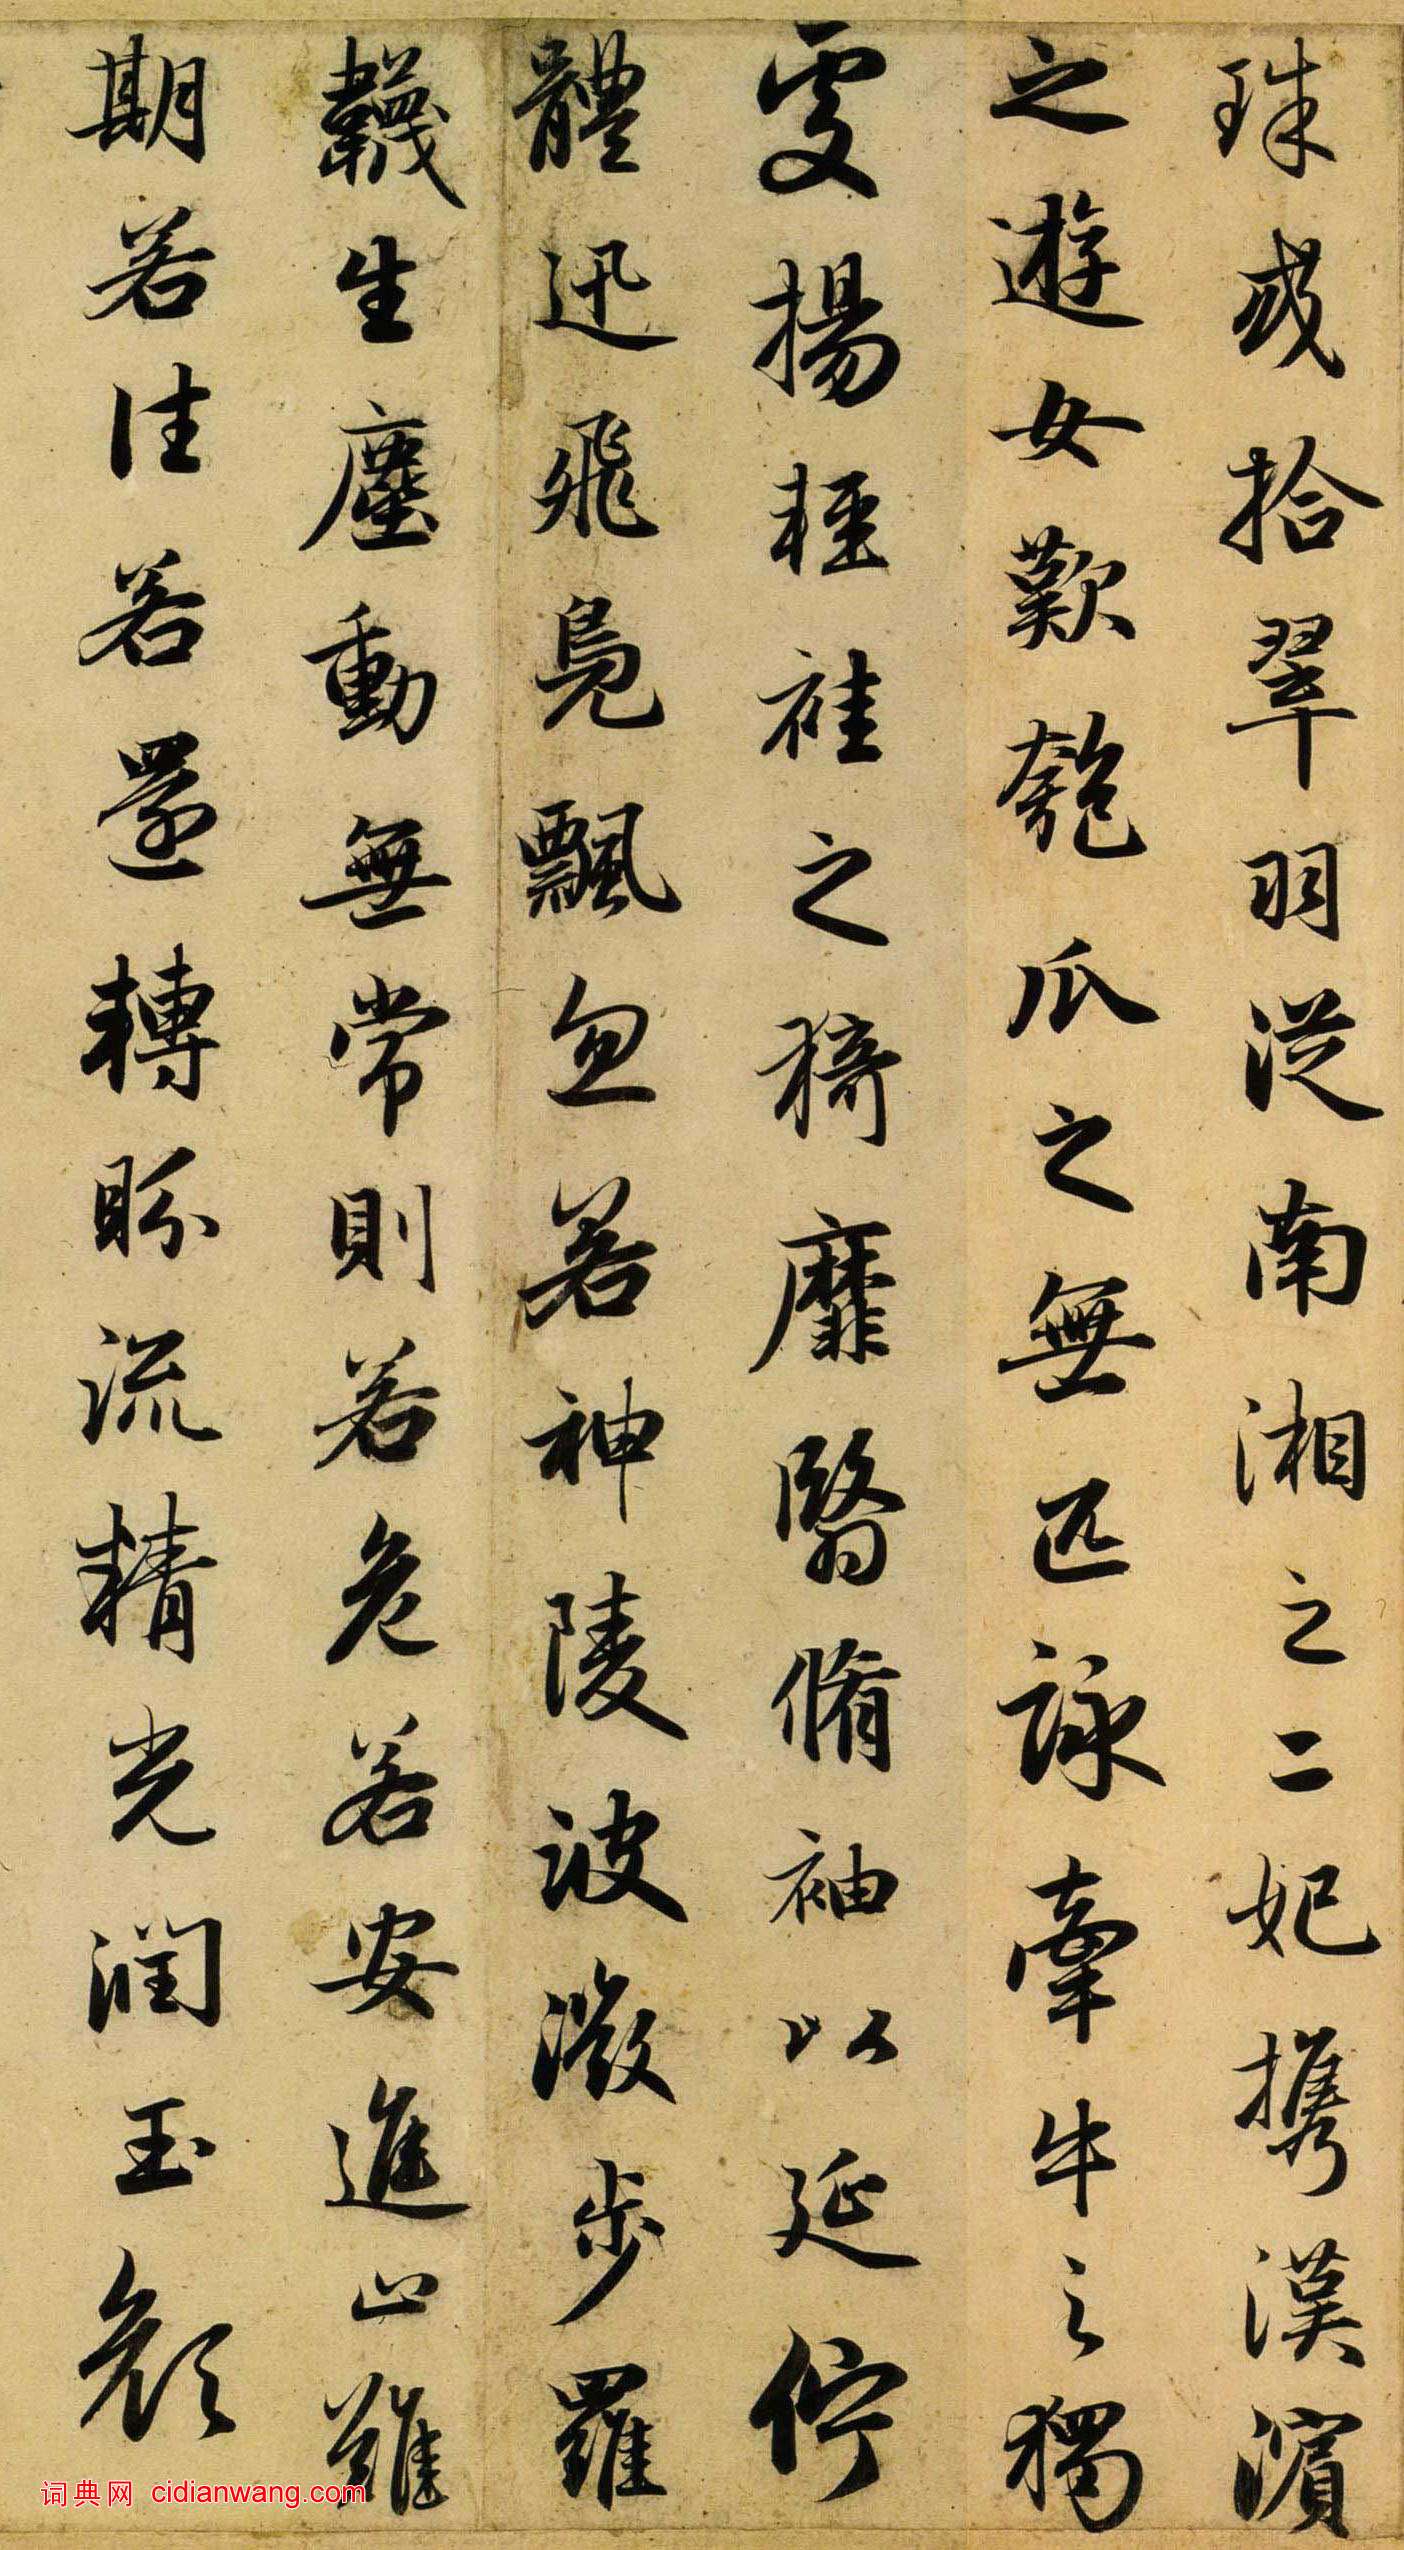 珠或拾翠羽從南湘之二妃攜漢濱
之遊女歎匏瓜之無匹詠牽牛之獨
處揚輕袿之猗靡翳脩袖以延佇
體迅飛鳧飄忽若神陵波微步羅
韈生塵動無常則若危若安進止難
期若往若還轉盼流精光潤玉顏
词典网 cidianwang.com